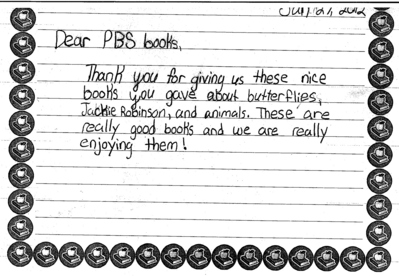 Dear PBS books,
Thank you for giving us these nice
books you gave about butterflies,
Jackie Robinson, and animals. These are
really good books and we are really
enjoying them!